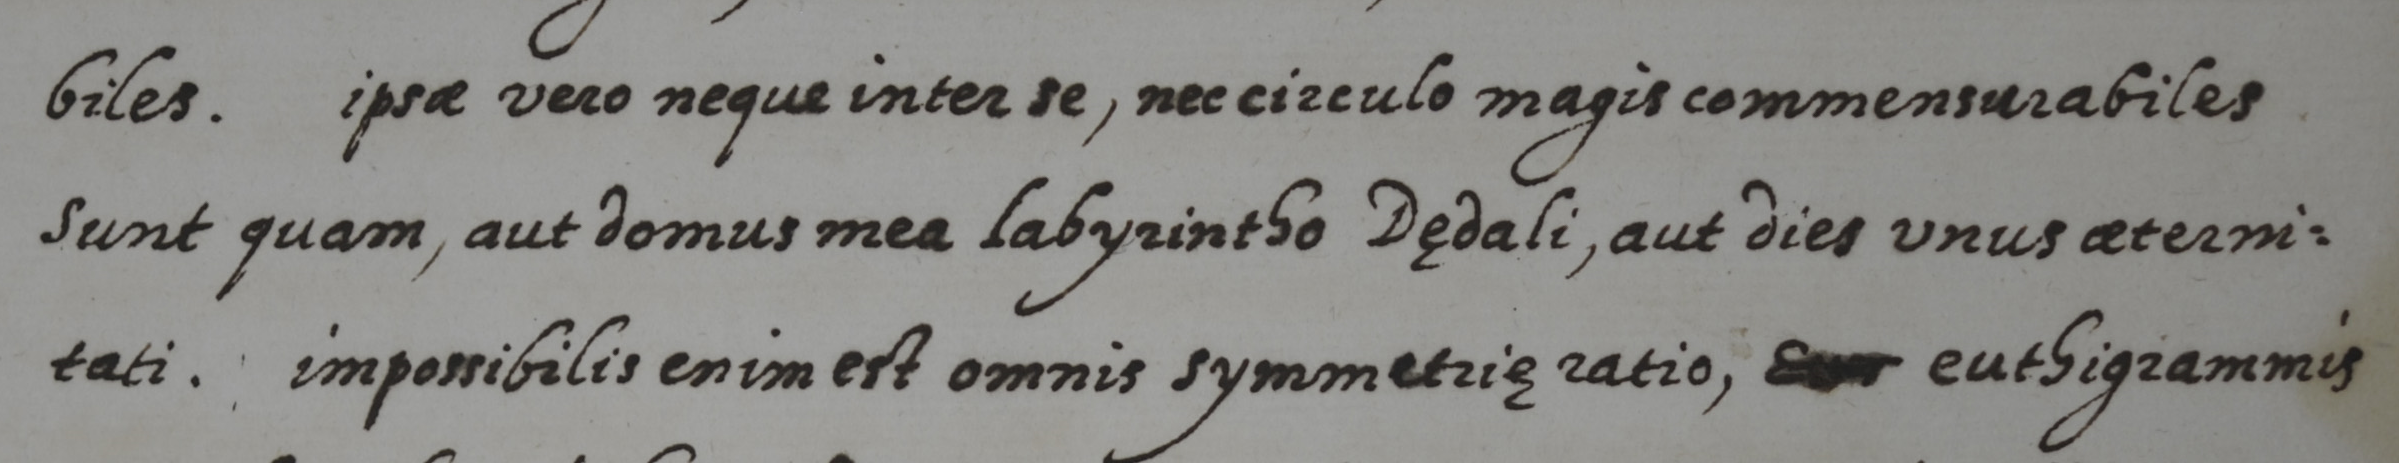 biles. ipsæ vero neque inter se, nec circulo magis commensurabiles
sunt quam, aut domus mea labyrintho Dędali, aut dies vnus æterni:
tati. impossibilis enim est omnis symmetrię ratio, euthigrammis